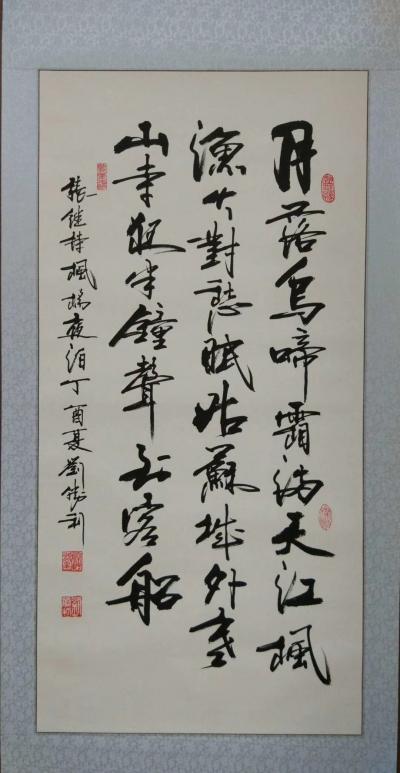 月落烏啼霜滿天江楓
漁火對愁眠姑蘇城外寒
山寺夜半鐘聲到客船
張继詩楓橋夜泊丁酉夏劉勝利